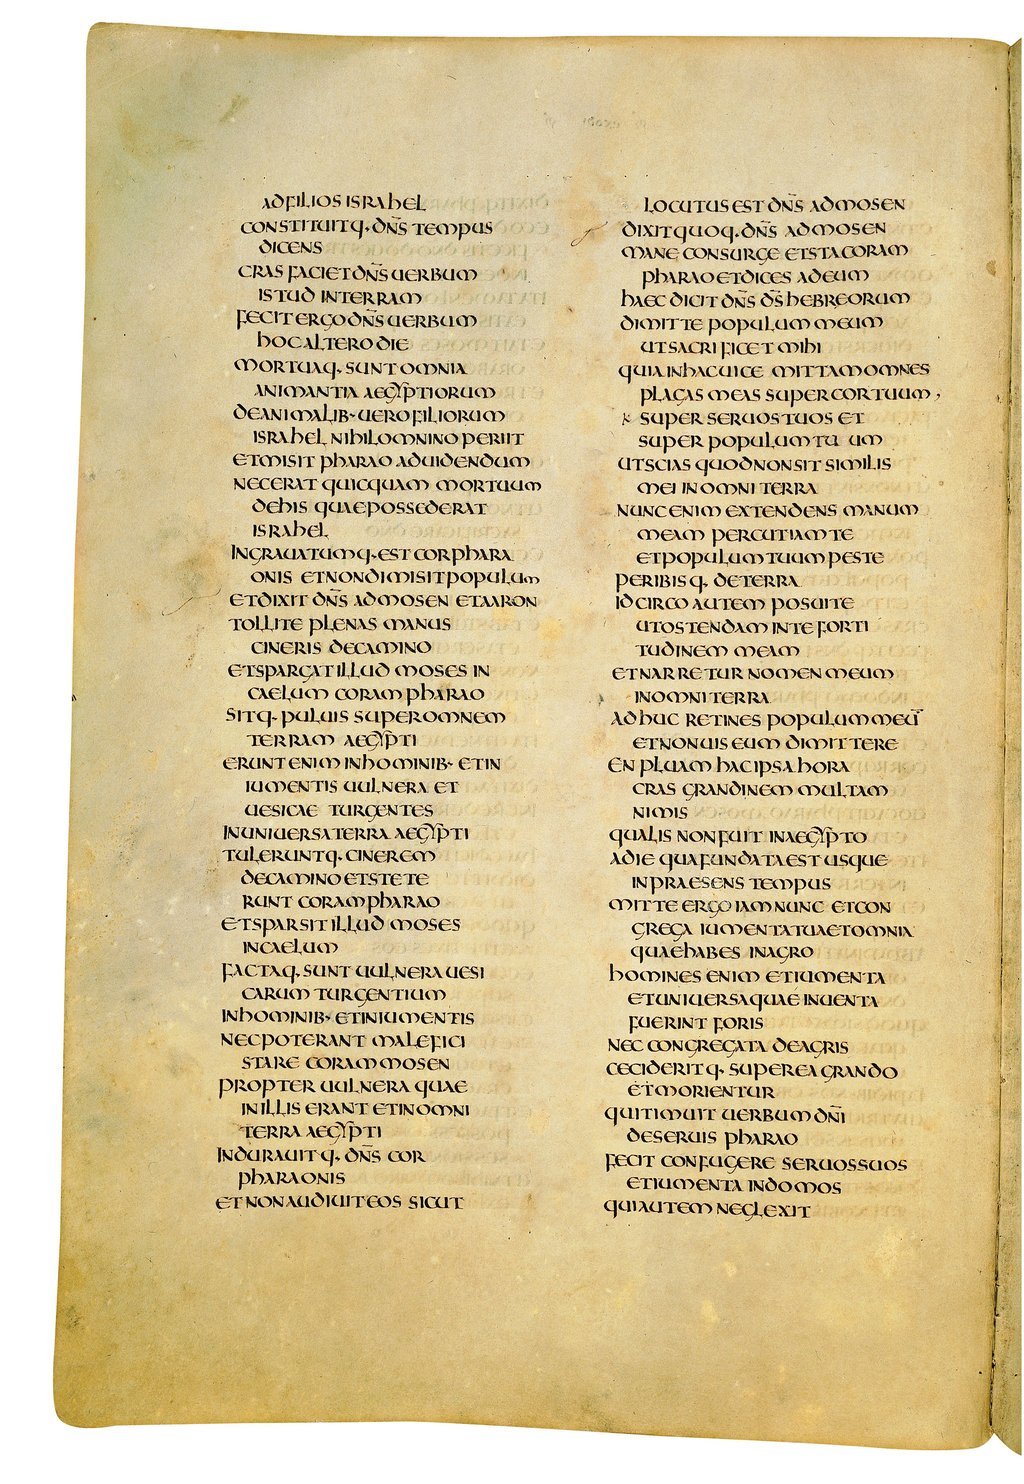 ADFILIOS ISRAHEL
CONSTITUITQ· DN̄S TEMPUS
DICENS
CRAS FACIET DN̄S UERBUM
ISTUD INTERRAM
FECIT ERGO DN̄S UERBUM
HOC ALTERO DIE
MORTUAQ· SUNT OMNIA
ANIMANTIA AEGYPTIORUM
DEANIMALIB· UERO FILIORUM
ISRAHEL NIHIL OMNINO PERIIT
ET MISIT PHARAO AD UIDENDUM
NEC ERAT QUICQUAM MORTUUM
DEHIS QUAE POSSEDERAT
ISRAHEL
INGRAUATUMQ· EST COR PHARA
ONIS ET NON DIMISIT POPULUM
ET DIXIT DN̄S AD MOSEN ET AARON
TOLLITE PLENAS MANUS
CINERIS DECAMINO
ET SPARGAT ILLUD MOSES IN
CAELUM CORAM PHARAO
SITQ· PULUIS SUPER OMNEM
TERRAM AEGYPTI
ERUNT ENIM IN HOMINIB· ET IN
IUMENTIS UULNERA ET
UESICAE TURGENTES
IN UNIUERSA TERRA AEGYPTI
TULERUNTQ· CINEREM
DECAMINO ET STETE
RUNT CORAM PHARAO
ET SPARSIT ILLUD MOSES
IN CAELUM
FACTAQ· SUNT UULNERA UESI
CARUM TURGENTIUM
IN HOMINIB· ET IN IUMENTIS
NEC POTERANT MALEFICI
STARE CORAM MOSEN
PROPTER UULNERA QUAE
IN ILLIS ERANT ET IN OMNI
TERRA AEGYPTI
INDURAUITQ· DN̄S COR
PHARAONIS
ET NON AUDIUIT EOS SICUT
LOCUTUS EST DN̄S AD MOSEN
DIXIT QUOQ· DN̄S AD MOSEN
MANE CONSURGE ET STA CORAM
PHARAO ET DICES AD EUM
HAEC DICIT DN̄S D̄S HEBREORUM
DIMITTE POPULUM MEUM
UT SACRIFICET MIHI
QUIA IN HAC UICE MITTAM OMNES
PLAGAS MEAS SUPER COR TUUM,
SUPER SERUOS TUOS ET
SUPER POPULUM TUUM
UT SCIAS QUOD NON SIT SIMILIS
MEI IN OMNI TERRA
NUNC ENIM EXTENDENS MANUM
MEAM PERCUTIAM TE
ET POPULUM TUUM PESTE
PERIBISQ· DE TERRA
IDCIRCO AUTEM POSUI TE
UT OSTENDAM IN TE FORTI
TUDINEM MEAM
ET NARRETUR NOMEN MEUM
IN OMNI TERRA
ADHUC RETINES POPULUM MEŪ
ET NON UIS EUM DIMITTERE
EN PLUAM HAC IPSA HORA
CRAS GRANDINEM MULTAM
NIMIS
QUALIS NON FUIT IN AEGYPTO
A DIE QUA FUNDATA EST USQUE
IN PRAESENS TEMPUS
MITTE ERGO IAM NUNC ET CON
GREGA IUMENTA TUA ET OMNIA
QUAE HABES IN AGRO
HOMINES ENIM ET IUMENTA
ET UNIUERSA QUAE INUENTA
FUERINT FORIS
NEC CONGREGATA DE AGRIS
CECIDERITQ· SUPER EA GRANDO
ET MORIENTUR
QUI TIMUIT UERBUM DN̄I
DE SERUIS PHARAO
FECIT CONFUGERE SERUOS SUOS
ET IUMENTA IN DOMOS
QUI AUTEM NEGLEXIT